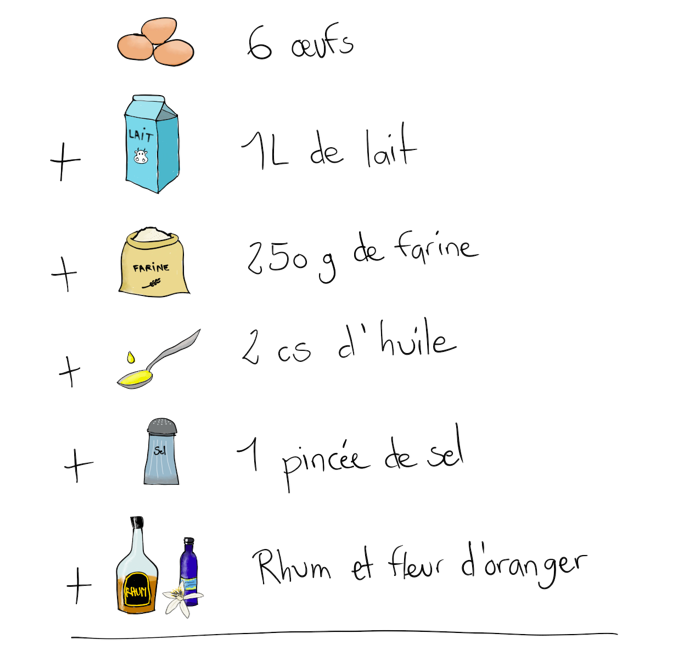 6 œufs
LAIT
+ 1L de lait
+ 250 g de farine
FARINE
+ 2 cs d'huile
+ 1 pincée de sel
Sel
+ Rhum et fleur d'oranger
RHUM